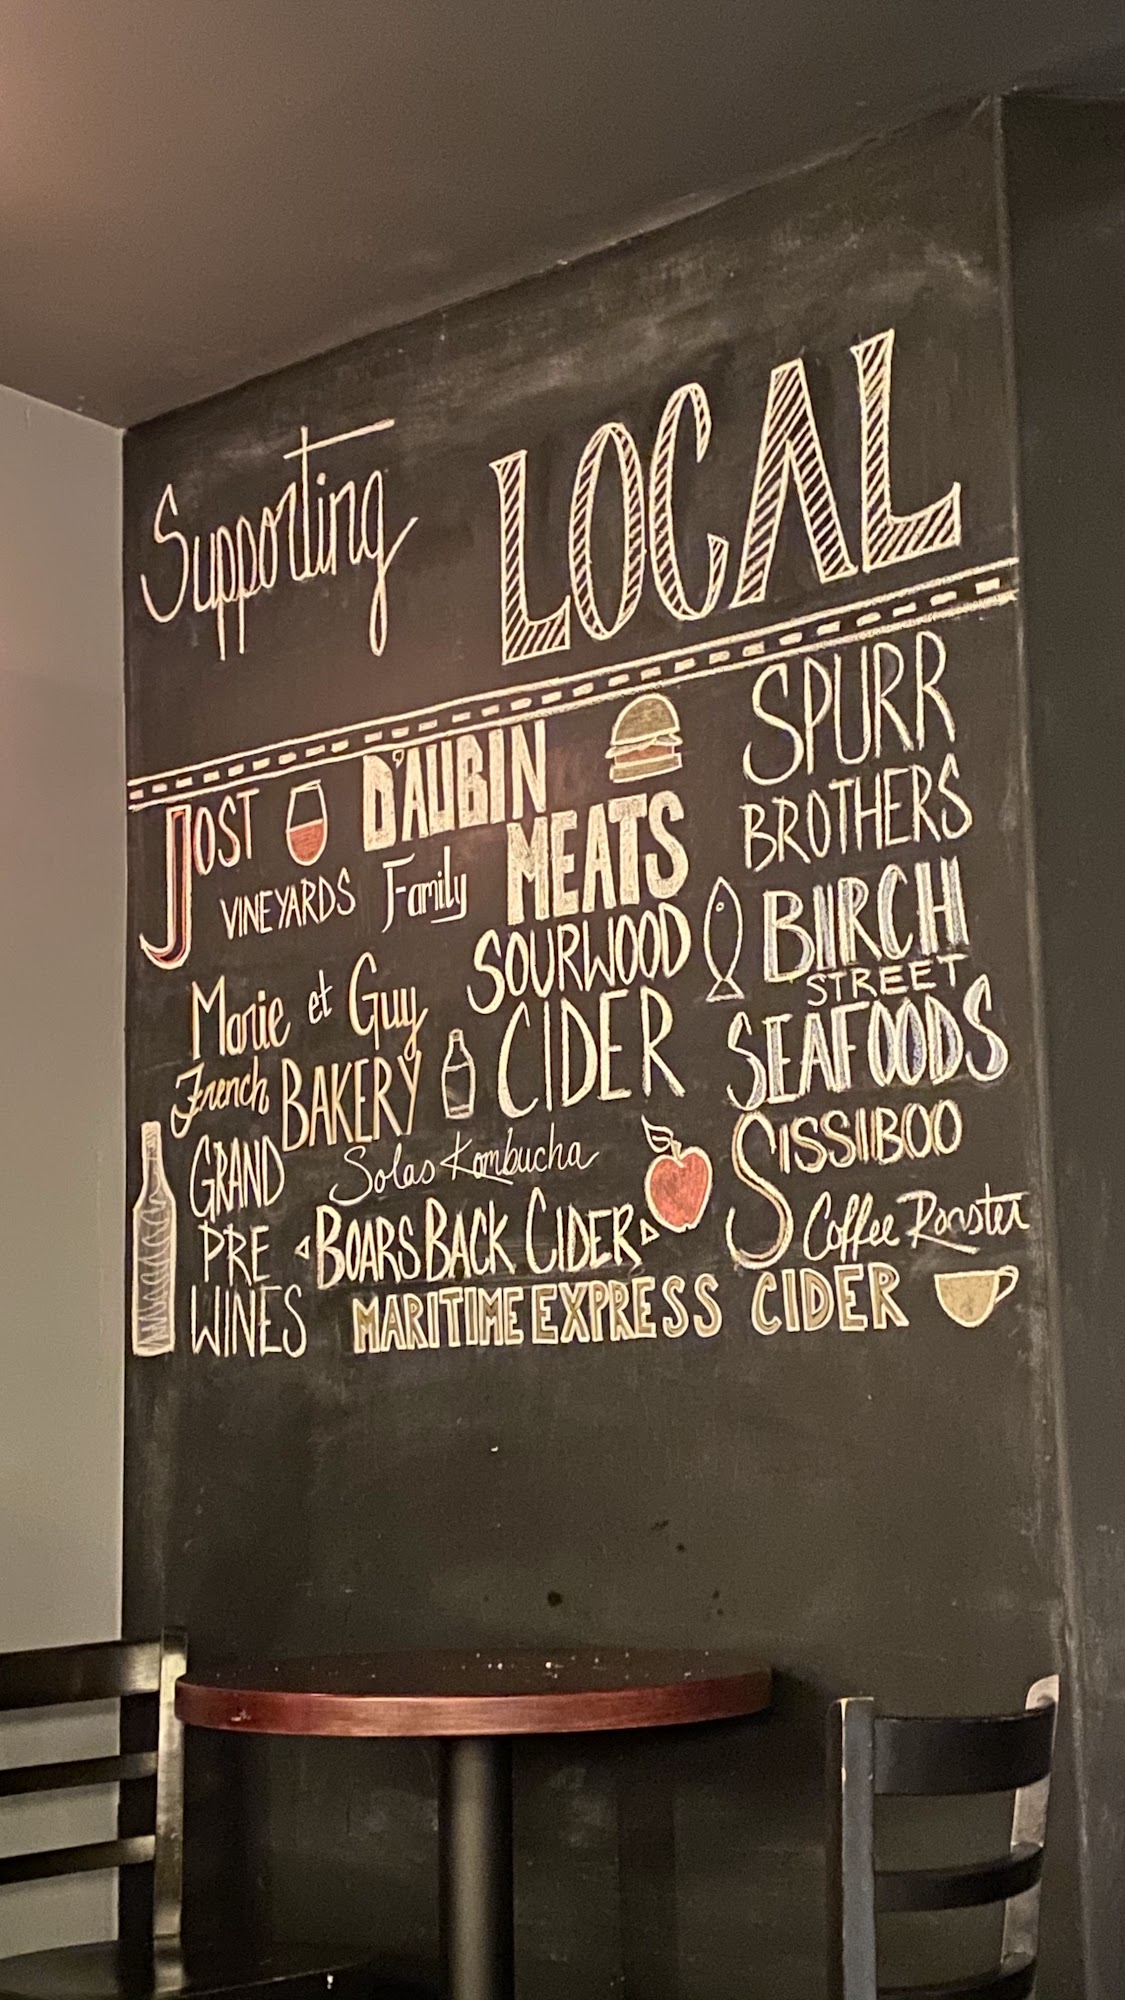 Supporting LOCAL
JOST
VINEYARDS
D'AUBIN
Family MEATS
SPURR
BROTHERS
Marie et Guy
French BAKERY
SOURWOOD
CIDER
BIRCH
STREET
SEAFOODS
GRAND
PRE
WINES
Solas Kombucha
BOARSBACK CIDER
SISSIBOO
Coffee Roaster
MARITIME EXPRESS CIDER